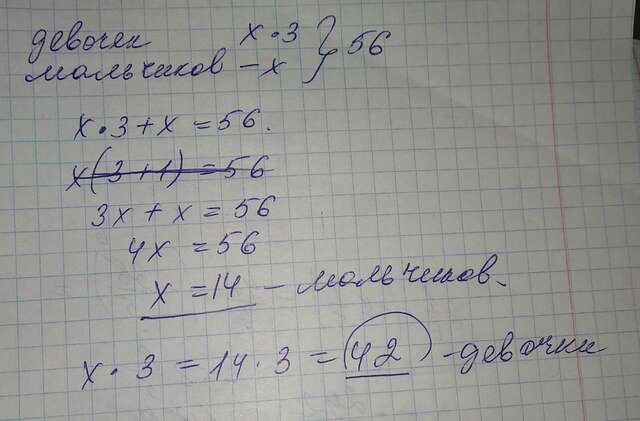 девочек x·3 } 56
мальчиков – x
x·3+x=56.
x(3+1)=56
3x+x=56
4x=56
x=14 – мальчиков.
x·3=14·3=42 -девочки